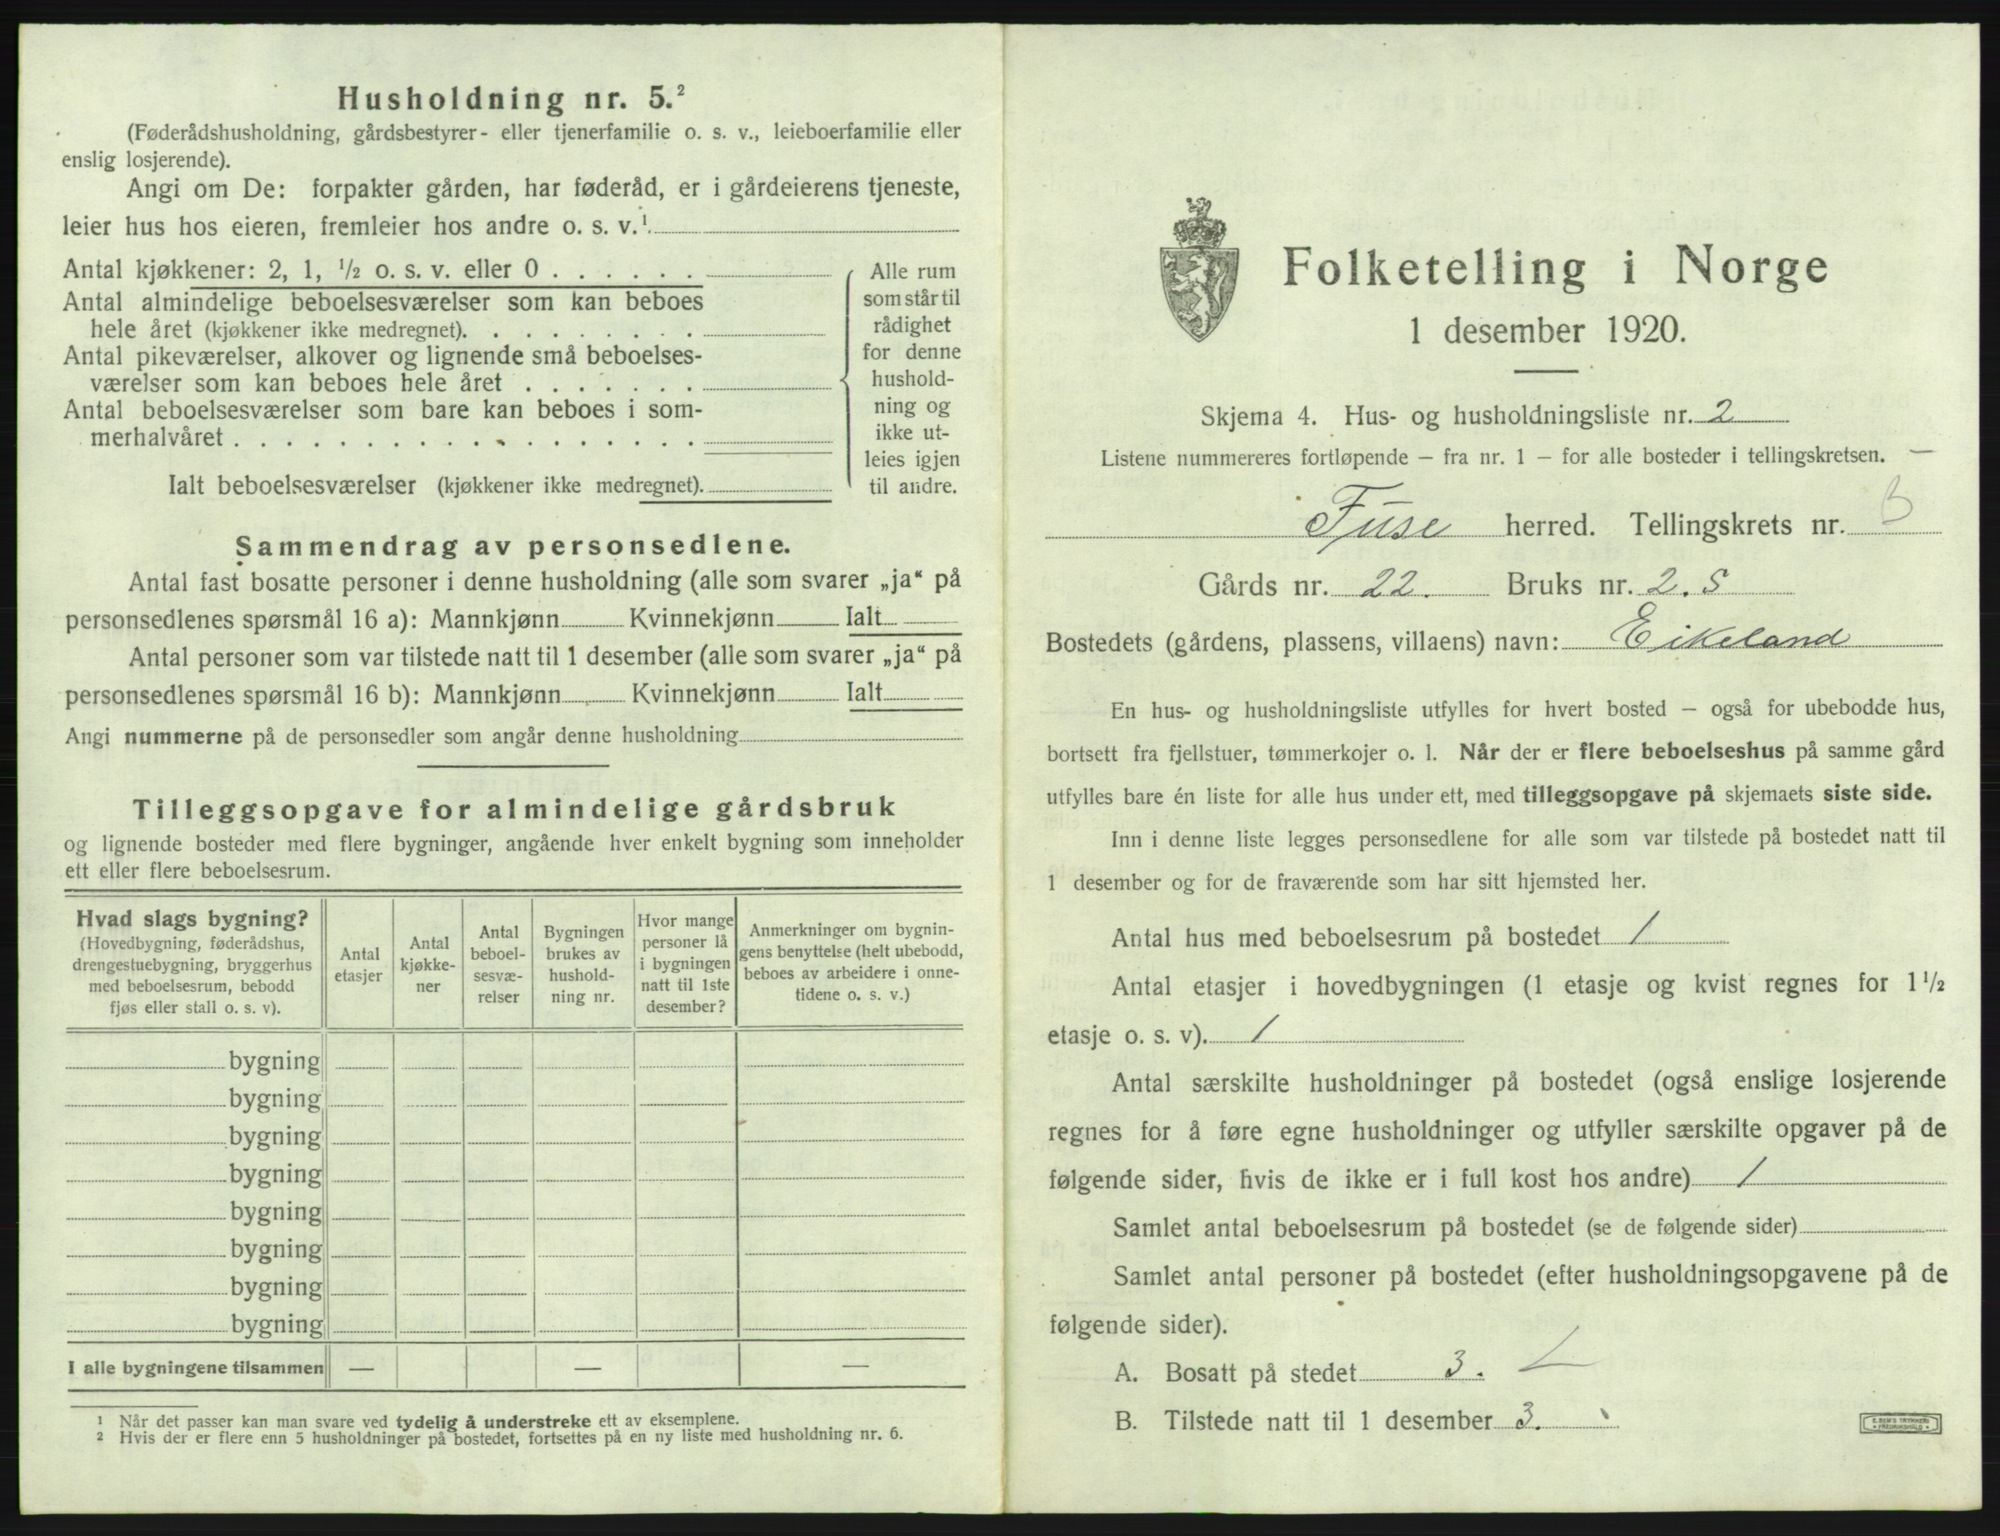 Husholdning nr. 5.²
(Føderådshusholdning, gårdsbestyrer- eller tjenerfamilie o. s. v., leieboerfamilie eller
enslig losjerende).
Angi om De: forpakter gården, har føderåd, er i gårdeierens tjeneste,
leier hus hos eieren, fremleier hos andre o. s. v.¹
Antal kjøkkener: 2, 1, ½ o. s. v. eller 0 . . . . . .
Antal almindelige beboelsesværelser som kan beboes
hele året (kjøkkener ikke medregnet). . . . . . . . .
Antal pikeværelser, alkover og lignende små beboelses-
værelser som kan beboes hele året . . . . . . .
Antal beboelsesværelser som bare kan beboes i som-
merhalvåret . . . . . . . . . . . . . . . . . .
Ialt beboelsesværelser (kjøkkener ikke medregnet).
Alle rum
som står til
rådighet
for denne
hushold-
ning og
ikke ut-
leies igjen
til andre.
Sammendrag av personsedlene.
Antal fast bosatte personer i denne husholdning (alle som svarer „ja“ på
personsedlenes spørsmål 16 a): Mannkjønn Kvinnekjønn Ialt
Antal personer som var tilstede natt til 1 desember (alle som svarer „ja“ på
personsedlenes spørsmål 16 b): Mannkjønn Kvinnekjønn Ialt
Angi nummerne på de personsedler som angår denne husholdning
Tilleggsopgave for almindelige gårdsbruk
og lignende bosteder med flere bygninger, angående hver enkelt bygning som inneholder
ett eller flere beboelsesrum.
Hvad slags bygning?
(Hovedbygning, føderådshus,
drengestuebygning, bryggerhus
med beboelsesrum, bebodd
fjøs eller stall o. s. v).
Antal
etasjer
Antal
kjøkke-
ner
Antal
beboel-
sesvæ-
relser
Bygningen
brukes av
hushold-
ning nr.
Hvor mange
personer lå
i bygningen
natt til 1ste
desember?
Anmerkninger om bygnin-
gens benyttelse (helt ubebodd,
beboes av arbeidere i onne-
tidene o. s. v.)
bygning
bygning
bygning
bygning
bygning
bygning
bygning
bygning
I alle bygningene tilsammen — — —
¹ Når det passer kan man svare ved tydelig å understreke ett av eksemplene.
² Hvis der er flere enn 5 husholdninger på bostedet, fortsettes på en ny liste med husholdning nr. 6.
Folketelling i Norge
1 desember 1920.
Skjema 4. Hus- og husholdningsliste nr. 2
Listene nummereres fortløpende – fra nr. 1 – for alle bosteder i tellingskretsen.
Fuse herred. Tellingskrets nr. 3
Gårds nr. 22. Bruks nr. 2. S
Bostedets (gårdens, plassens, villaens) navn: Eikeland
En hus- og husholdningsliste utfylles for hvert bosted – også for ubebodde hus,
bortsett fra fjellstuer, tømmerkojer o. l. Når der er flere beboelseshus på samme gård
utfylles bare én liste for alle hus under ett, med tilleggsopgave på skjemaets siste side.
Inn i denne liste legges personsedlene for alle som var tilstede på bostedet natt til
1 desember og for de fraværende som har sitt hjemsted her.
Antal hus med beboelsesrum på bostedet 1
Antal etasjer i hovedbygningen (1 etasje og kvist regnes for 1½
etasje o. s. v). 1
Antal særskilte husholdninger på bostedet (også enslige losjerende
regnes for å føre egne husholdninger og utfyller særskilte opgaver på de
følgende sider, hvis de ikke er i full kost hos andre) 1
Samlet antal beboelsesrum på bostedet (se de følgende sider)
Samlet antal personer på bostedet (efter husholdningsopgavene på de
følgende sider).
A. Bosatt på stedet 3.
B. Tilstede natt til 1 desember 3.